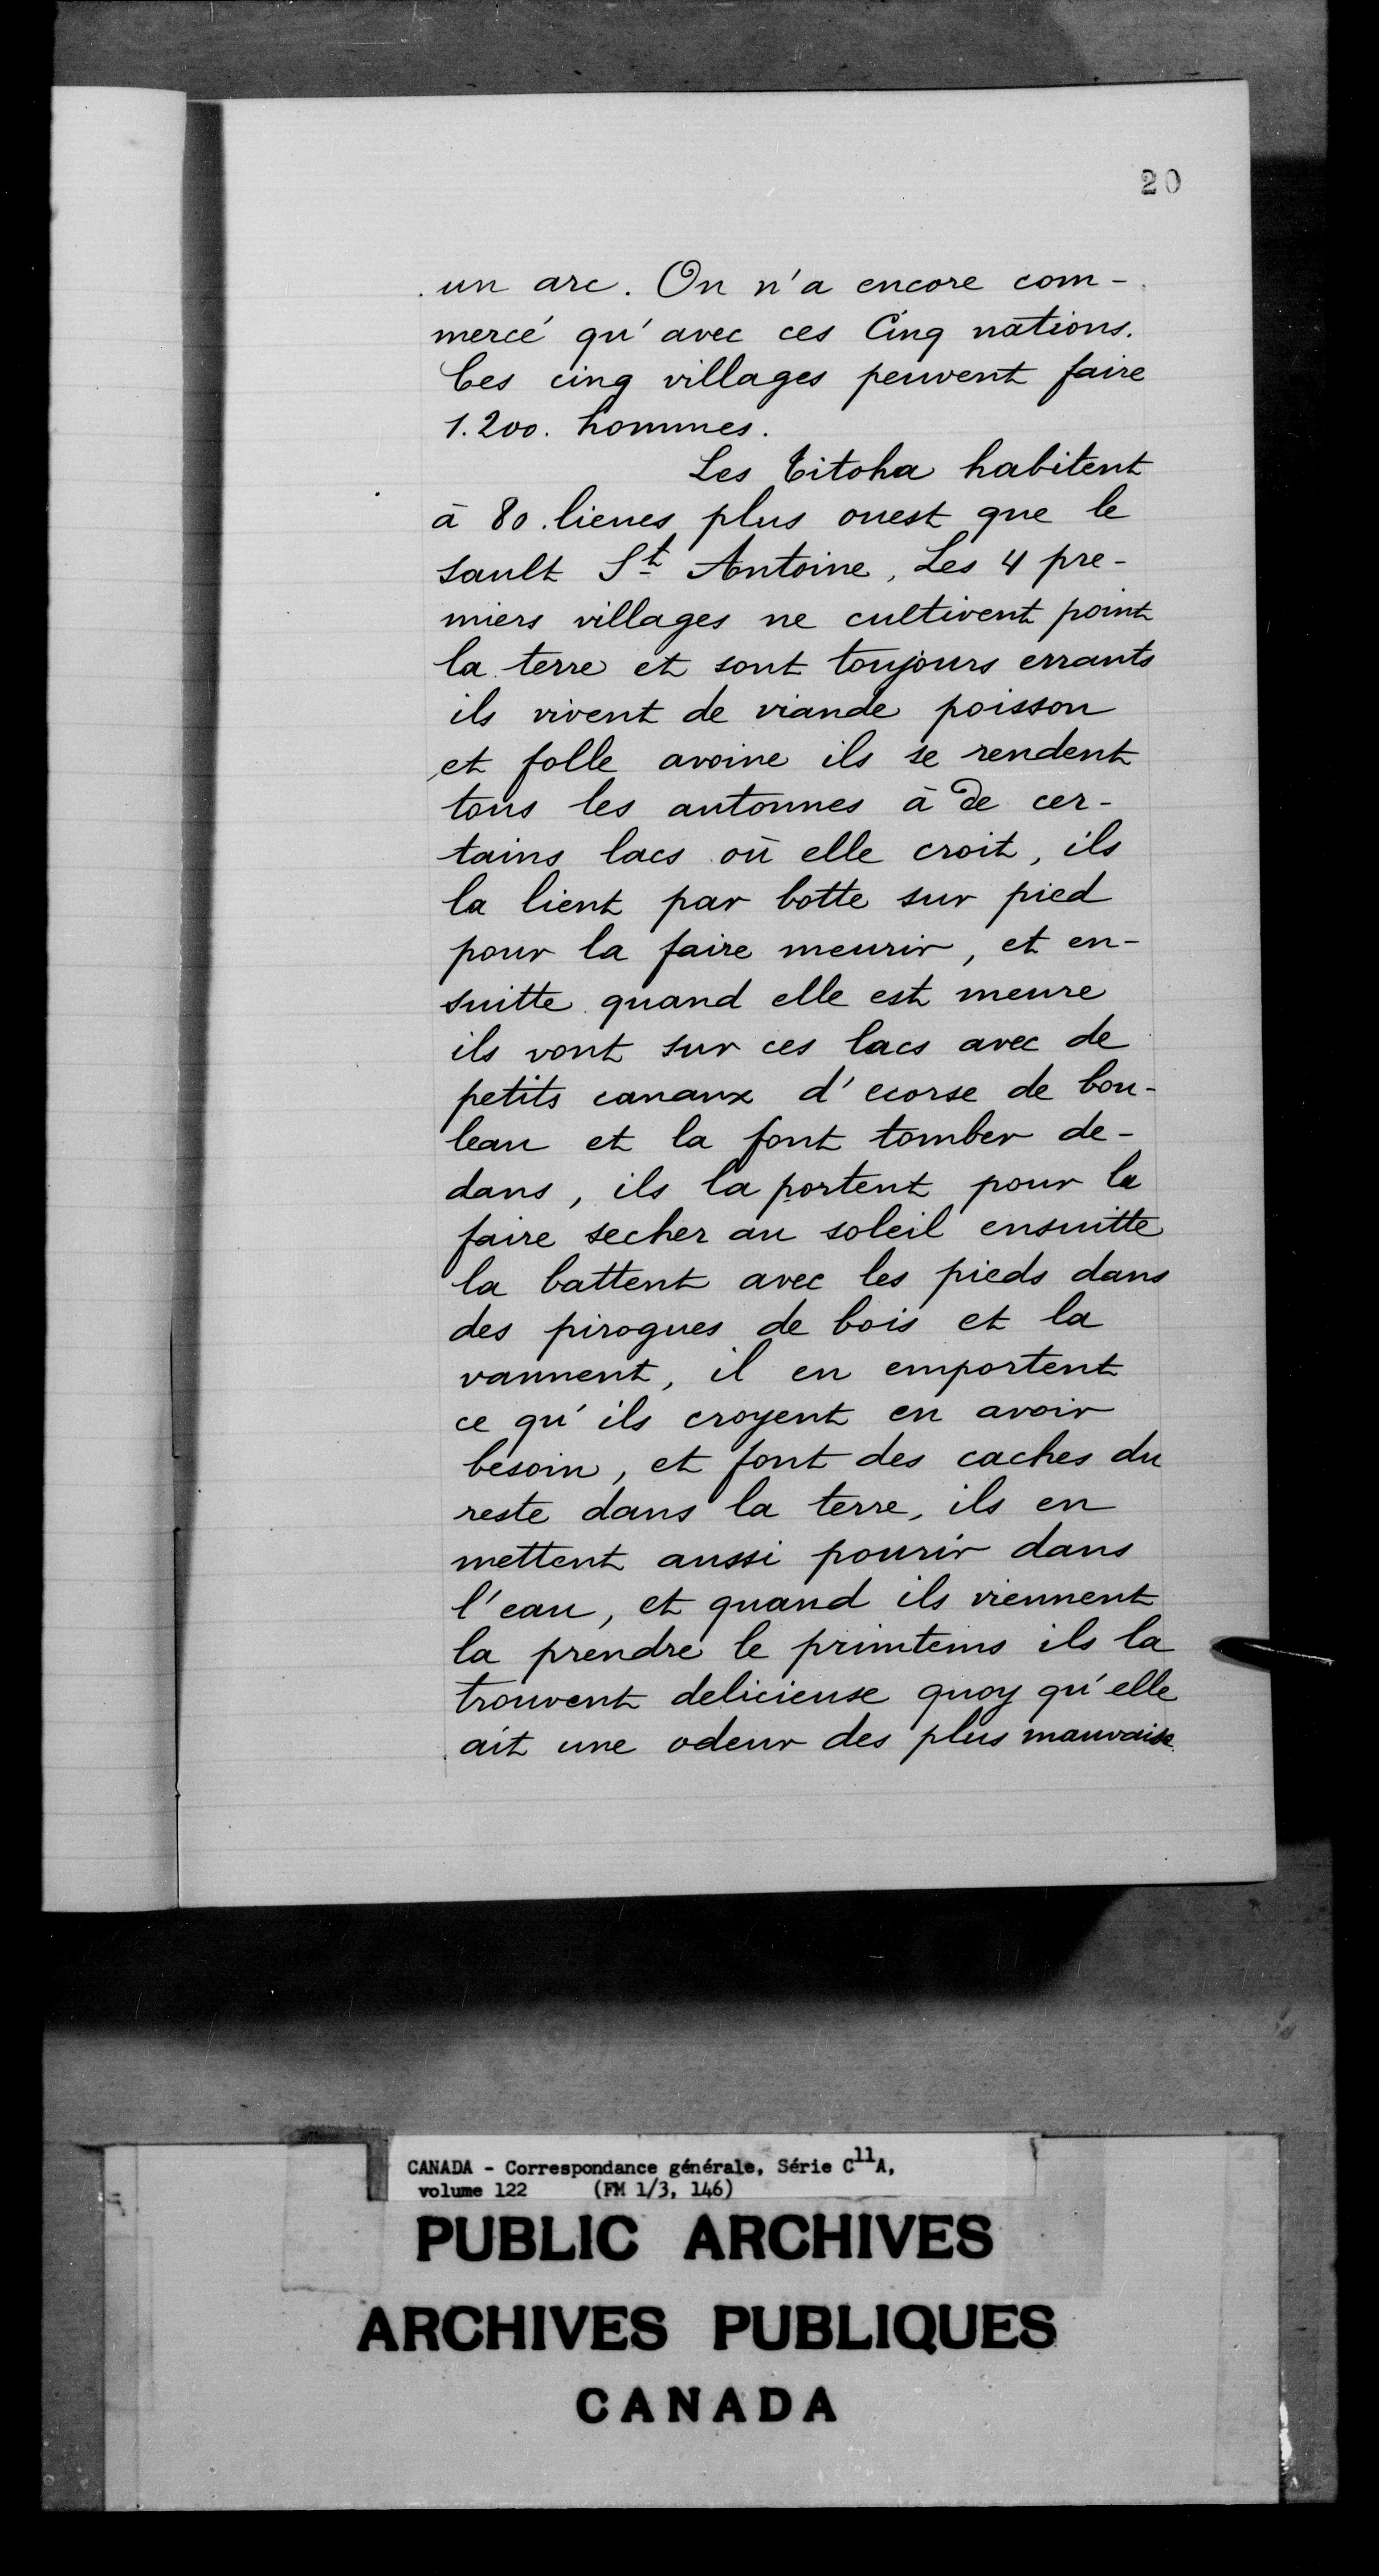 20
un arc. On n'a encore com-
mercé qu'avec ces Cinq nations.
Ces cinq villages peuvent faire
1.200. hommes.
Les Titoha habitent
à 80. lieues plus ouest que le
sault St Antoine, Les 4 pre-
miers villages ne cultivent point
la terre et sont toujours errants
ils vivent de viande poisson
et folle avoine ils se rendent
tous les autonnes à de cer-
tains lacs où elle croit, ils
la lient par botte sur pied
pour la faire meurir, et en-
suitte quand elle est meure
ils vont sur ces lacs avec de
petits canaux d'ecorse de bou-
leau et la font tomber de-
dans, ils la portent pour la
faire secher au soleil ensuitte
la battent avec les pieds dans
des pirogues de bois et la
vannent, il en emportent
ce qu'ils croyent en avoir
besoin, et font des caches du
reste dans la terre, ils en
mettent aussi pourir dans
l'eau, et quand ils viennent
la prendre le printems ils la
trouvent delicieuse quoy qu'elle
ait une odeur des plus mauvaise
CANADA - Correspondance générale, Série C11A,
volume 122 (FM 1/3, 146)
PUBLIC ARCHIVES
ARCHIVES PUBLIQUES
CANADA